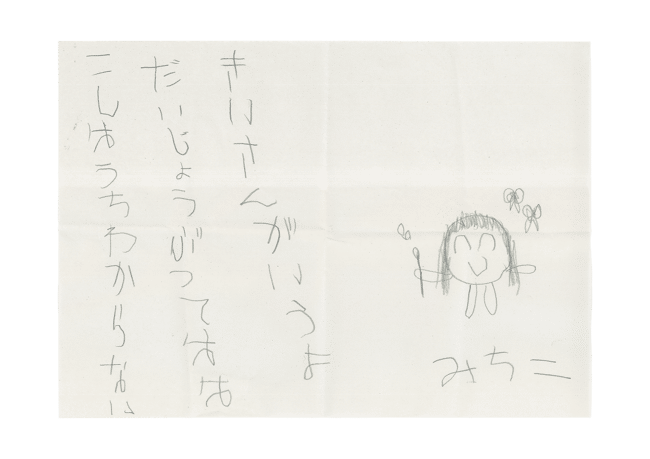 きいさんがいうよ
だいじょうぶってはな
こしはうちわからない
みちこ